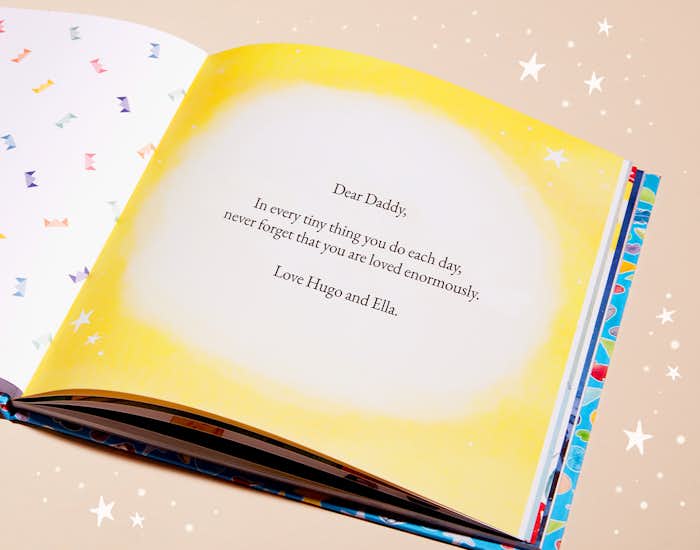 Dear Daddy,
In every tiny thing you do each day,
never forget that you are loved enormously.
Love Hugo and Ella.